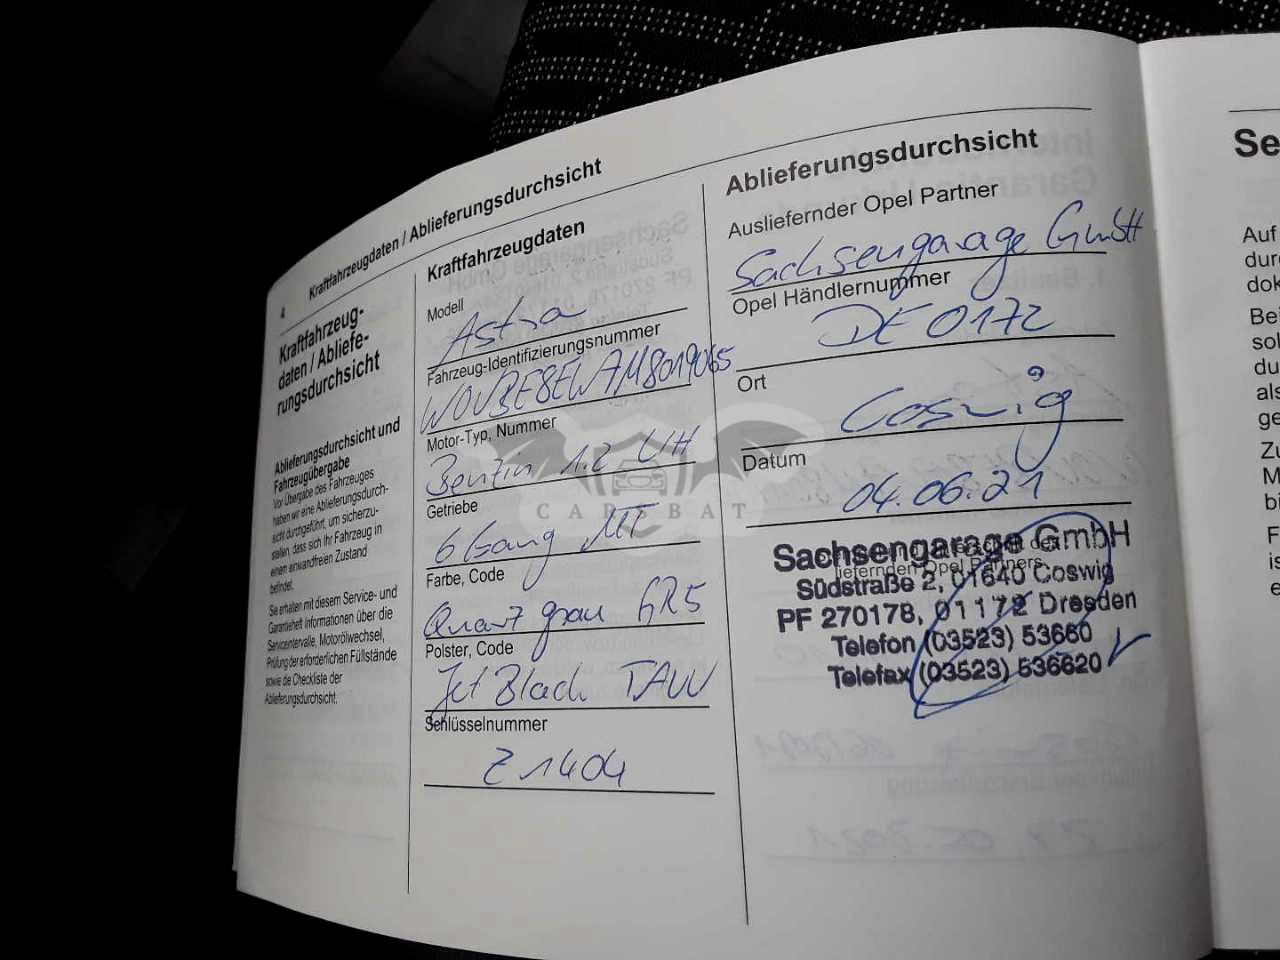 4 Kraftfahrzeugdaten / Ablieferungsdurchsicht
Kraftfahrzeug-
daten / Abliefe-
rungsdurchsicht
Ablieferungsdurchsicht und
Fahrzeugübergabe
Vor Übergabe des Fahrzeuges
haben wir eine Ablieferungsdurch-
sicht durchgeführt, um sicherzu-
stellen, dass sich Ihr Fahrzeug in
einem einwandfreien Zustand
befindet.
Sie erhalten mit diesem Service- und
Garantieheft Informationen über die
Serviceintervalle, Motorölwechsel,
Prüfung der erforderlichen Füllstände
sowie die Checkliste der
Ablieferungsdurchsicht.
Kraftfahrzeugdaten
Modell
Astra
Fahrzeug-Identifizierungsnummer
W0VBE8EWAM8019065
Motor-Typ, Nummer
Benzin 1.2 LH
Getriebe
6 Gang MT
Farbe, Code
Quarz grau GR5
Polster, Code
Jet Black TAVV
Schlüsselnummer
Z1404
Ablieferungsdurchsicht
Ausliefernder Opel Partner
Sachsengarage GmbH
Opel Händlernummer
DE 0172
Ort
Coswig
Datum
04.06.21
Sachsengarage GmbH
liefernden Opel Partners
Südstraße 2, 01640 Coswig
PF 270178, 01172 Dresden
Telefon (03523) 53660
Telefax (03523) 536620
CAREBAT
Se
Auf
dur
dok
Bei
sol
du
als
ge
Zu
M
bi
F
is
e